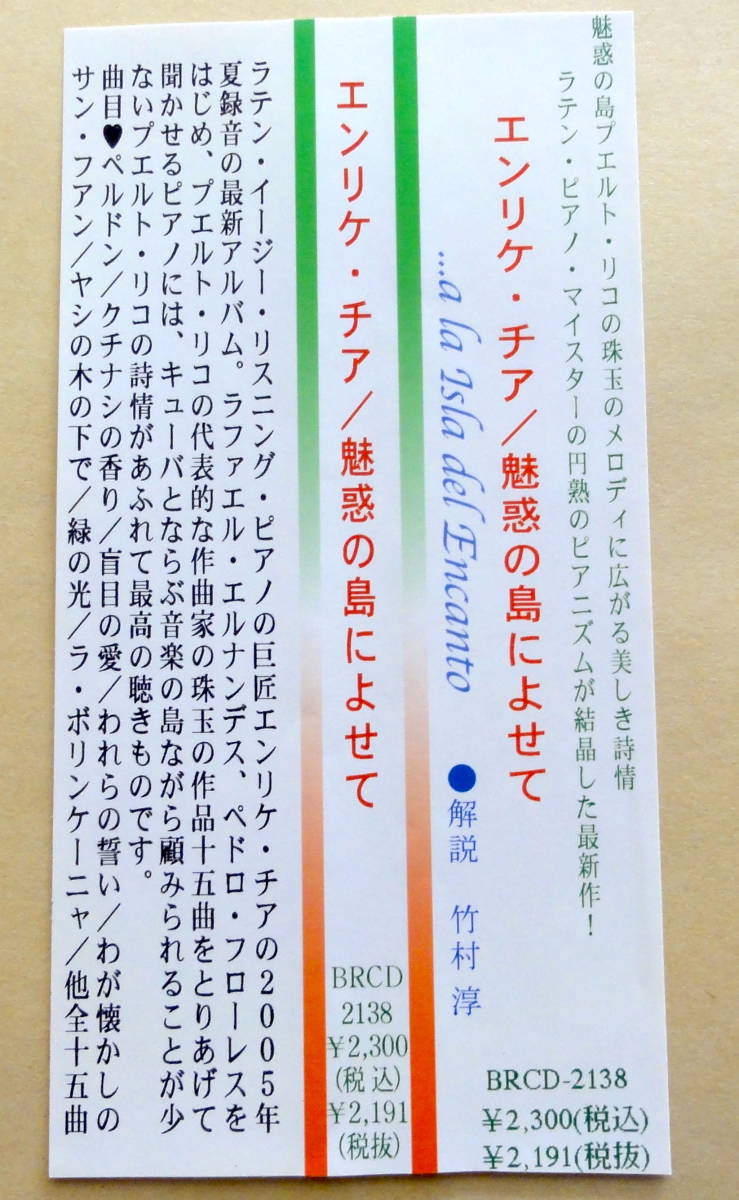 魅惑の島プエルト・リコの珠玉のメロディに広がる美しき詩情
ラテン・ピアノ・マイスターの円熟のピアニズムが結晶した最新作！
エンリケ・チア／魅惑の島によせて
...a la Isla del Encanto
●解説　竹村　淳
BRCD-2138
¥2,300(税込)
¥2,191(税抜)
エンリケ・チア／魅惑の島によせて
BRCD
2138
¥2,300
(税込)
¥2,191
(税抜)
ラテン・イージー・リスニング・ピアノの巨匠エンリケ・チアの2005年
夏録音の最新アルバム。ラファエル・エルナンデス、ペドロ・フローレスを
はじめ、プエルト・リコの代表的な作曲家の珠玉の作品十五曲をとりあげて
聞かせるピアノには、キューバとならぶ音楽の島ながら顧みられることが少
ないプエルト・リコの詩情があふれて最高の聴きものです。
曲目♥ペルドン／クチナシの香り／盲目の愛／われらの誓い／わが懐かしの
サン・フアン／ヤシの木の下で／緑の光／ラ・ボリンケーニャ／他全十五曲